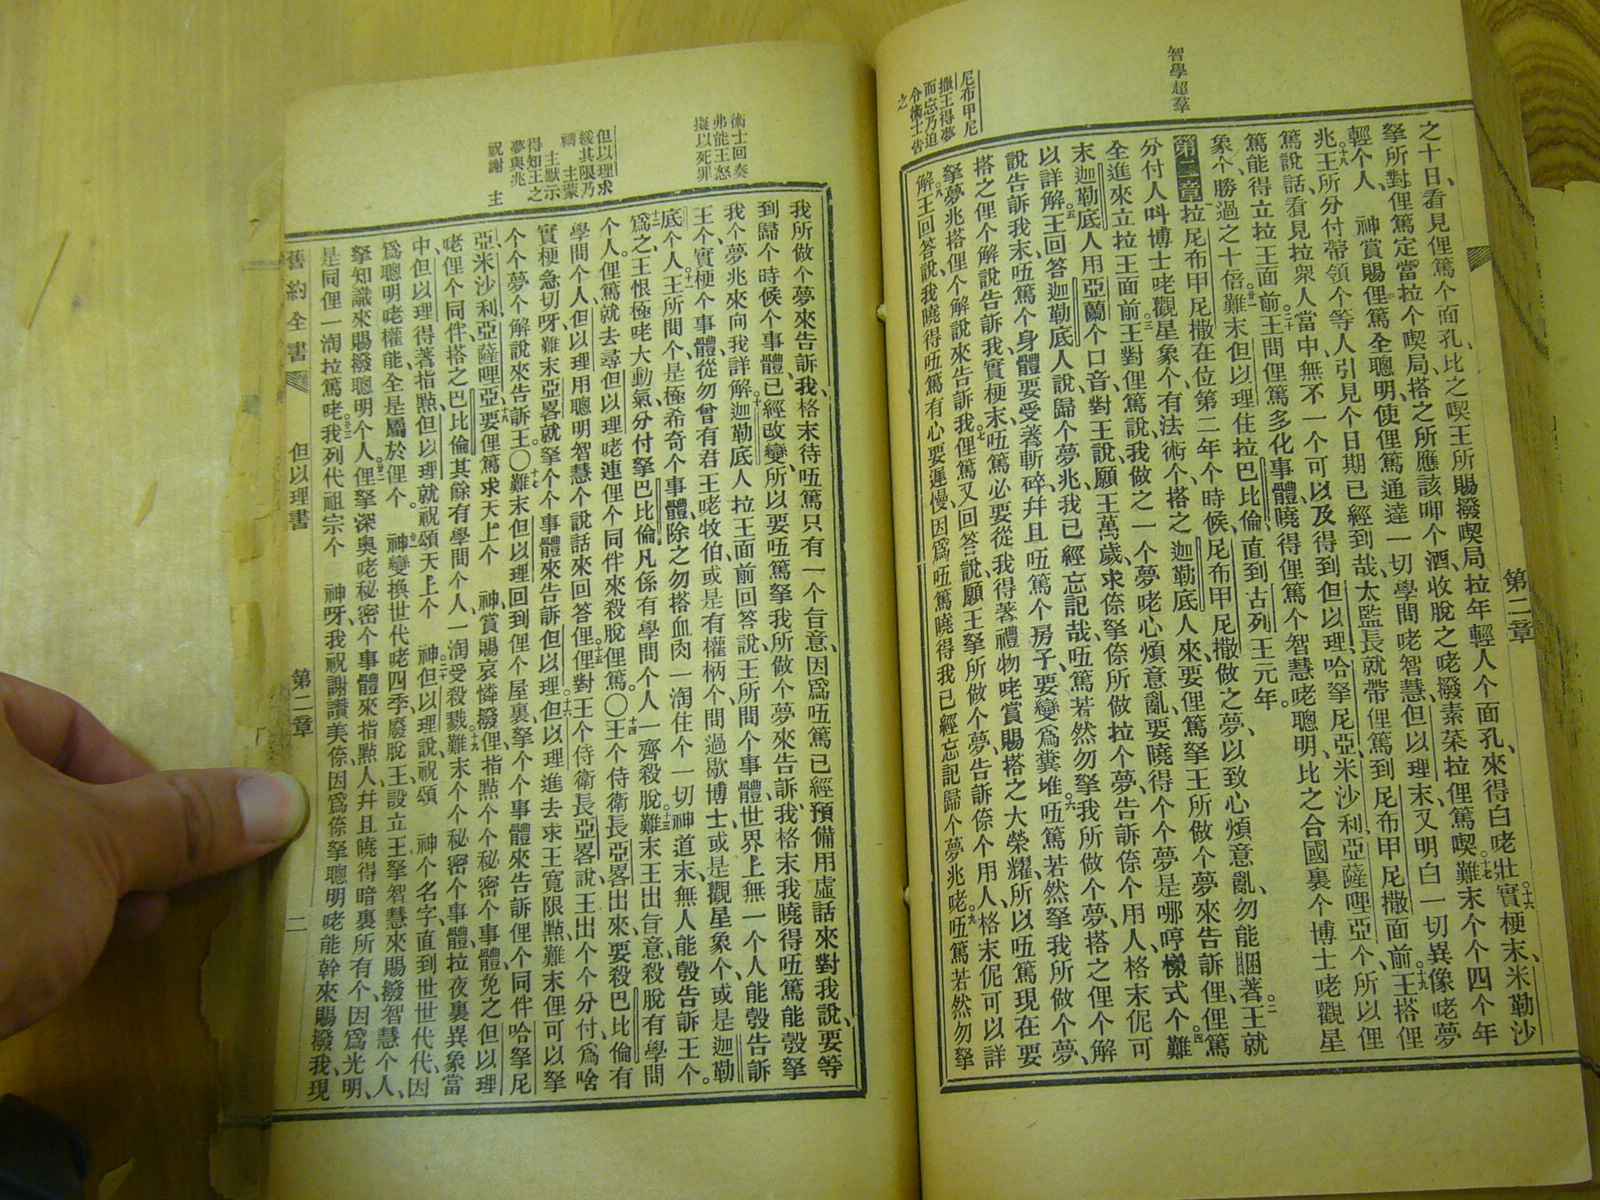 智學超羣
第二章
之十日看見俚篤个面孔、比之喫王所賜撥喫局拉年輕人个面孔、來得白咾壯、實梗末、米勒沙
拏所對俚篤定當拉个喫局、搭之所應該呷个酒收脫之咾撥素菜拉俚篤喫、難末个个四个年
輕个人、神賞賜俚篤全聰明、使俚篤通達一切學問咾智慧、但以理末、又明白一切異像咾夢
兆、王所分付帶領个等人引見个日期已經到哉、太監長就帶俚篤到尼布甲尼撒面前、王搭俚
篤說話、看見拉衆人當中、無不一个可以及得到但以理哈拏尼亞、米沙利、亞薩哩亞个、所以俚
篤能得立拉王面前、王問俚篤多化事體、曉得俚篤个智慧咾聰明、比之合國裏个博士咾觀星
象个、勝過之十倍、難末但以理住拉巴比倫、直到古列王元年。
第二章拉尼布甲尼撒在位第二年个時候、尼布甲尼撒做之夢、以致心煩意亂、勿能睏著、王就
分付人呌博士咾觀星象个、有法術个、搭之迦勒底人來、要俚篤拏王所做个夢來告訴俚、俚篤
全進來立拉王面前、王對俚篤說、我做之一个夢咾心煩意亂、要曉得个个夢是哪哼樣式个、難
末迦勒底人用亞蘭个口音、對王說、願王萬歲、求倷拏倷所做拉个夢、告訴倷个用人、格末伲可
以詳解、王回答迦勒底人說、歸个夢兆我已經忘記哉、唔篤若然勿拏我所做个夢、搭之俚个解
說告訴我末、唔篤个身體要受著斬碎、幷且唔篤个房子、要變爲糞堆、唔篤若然拏我所做个夢、
搭之俚个解說告訴我、實梗末、唔篤必要從我得著禮物咾賞賜、搭之大榮耀、所以唔篤現在要
拏夢兆搭俚个解說來告訴我、俚篤又回答說、願王拏所做个夢、告訴倷个用人、格末伲可以詳
解、王回答說、我曉得唔篤有心要遲慢、因爲唔篤曉得我已經忘記歸个夢兆咾、唔篤若然勿拏
尼布甲尼
撒王得夢
而忘乃迫
令術士告
之
我所做个夢來告訴我、格末待唔篤只有一个旨意、因爲唔篤已經預備用虛話來對我說、要等
到歸个時候个事體、已經改變、所以要唔篤拏我所做个夢來告訴我、格末我曉得唔篤能彀拏
我个夢兆來向我詳解、迦勒底人拉王面前回答說、王所問个事體、世界上無一个人能彀告訴
王个、實梗个事體、從勿曾有君王咾牧伯、或是有權柄个、問過歇博士、或是觀星象个、或是迦勒
底个人、王所問个是極希奇个事體、除之勿搭血肉一淘住个一切神道末、無人能彀告訴王个。
爲之王恨極咾大動氣、分付拏巴比倫凡係有學問个人、一齊殺脫、難末王出旨意、殺脫有學問
个人、俚篤就去尋但以理咾連俚个同伴來殺脫俚篤。〇王个侍衛長亞畧出來、要殺巴比倫有
學問个人、但以理用聰明智慧个說話來回答俚、俚對王个侍衛長亞畧說、王出个个分付、爲啥
實梗急切呀、難末亞畧就拏个个事體來告訴但以理、但以理進去求王寬限點、難末俚可以拏
个个夢个解說來告訴王。〇難末但以理回到俚个屋裏、拏个个事體來告訴俚个同伴哈拏尼
亞、米沙利、亞薩哩亞、要俚篤求天上个 神、賞賜哀憐、撥俚指點个个秘密个事體、免之但以理
咾俚个同伴、搭之巴比倫其餘有學問个人、一淘受殺戮、難末个个秘密个事體、拉夜裏異象當
中、但以理得著指點、但以理就祝頌天上个 神、但以理說、祝頌 神个名字直到世世代代、因
爲聰明咾權能、全是屬於俚个。 神變換世代咾四季、廢脫王、設立王、拏智慧來賜撥智慧个人、
拏知識來賜撥聰明个人、俚拏深奥咾秘密个事體來指點人、幷且曉得暗裏所有个、因爲光明、
是同俚一淘拉篤咾、我列代祖宗个 神呀、我祝謝讚美倷、因爲倷拏聰明咾能幹來賜撥我、現
術士回奏
弗能王怒
擬以死罪
但以理求
緩其限乃
禱 主蒙
主默示
得知王之
夢與兆
祝謝 主
舊約全書 但以理書 第二章 二